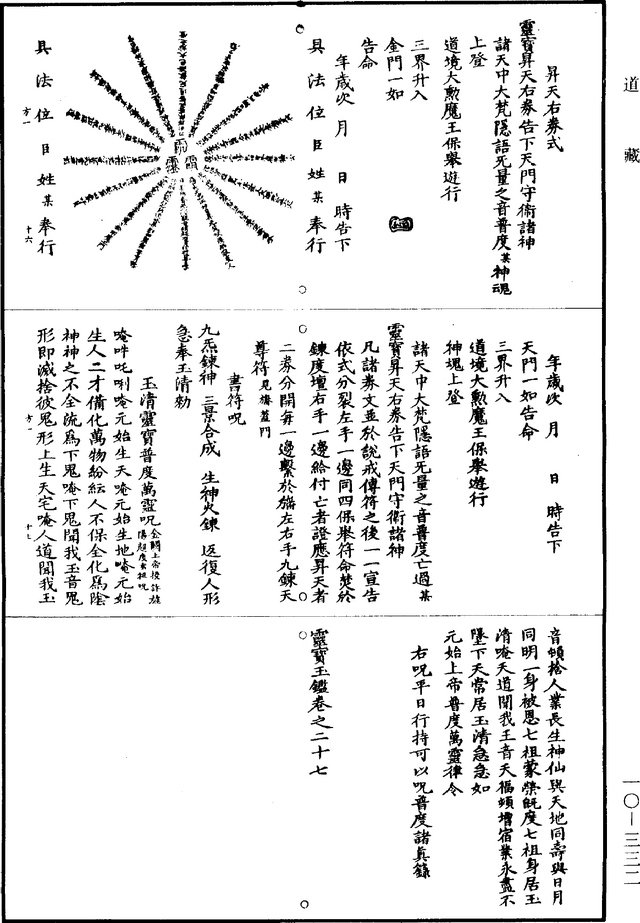 道藏
昇天右券式
靈寶昇天右券告下天門守衛諸神
諸天中大梵隱語无量之音普度某神魂
上登
道境大勲魔王保舉遊行
三界升入
金門一如
告命
年歲次 月 日 時告下
具法位臣姓某奉行
具法位臣姓某奉行
方一 十六
年歲次 月 日 時告下
天門一如告命
三界升入
道境大勲魔王保舉遊行
神魂上登
諸天中大梵隱語无量之音普度亡過某
靈寶昇天右券告下天門守衛諸神
凡諸券文並於說戒傳符之後一一宣告
依式分裂左手一邊同四保舉符命焚於
鍊度壇右手一邊給付亡者證應昇天者
二券分開每一邊繫於旛左右手九鍊天
尊符見旛蓋門
書符呪
九炁鍊神 三景合成 生神火鍊 返復人形
急奉玉清勑
玉清靈寶普度萬靈呪
唵吽吒唎唵元始生天唵元始生地唵元始
生人二才備化萬物紛紜人不保全化爲陰
神神之不全流爲下鬼唵下鬼聞我玉音鬼
形即滅捨彼鬼形上生天宅唵人道聞我玉
方一 十七
音頓捨人業長生神仙與天地同壽與日月
同明一身被恩七祖蒙榮旣度七祖身居玉
清唵天道聞我玉音天福頓增宿業永盡不
墜下天常居玉清急急如
元始上帝普度萬靈律令
右呪平日行持可以呪普度諸眞籙
靈寶玉鑑卷之二十七
一〇－三三二